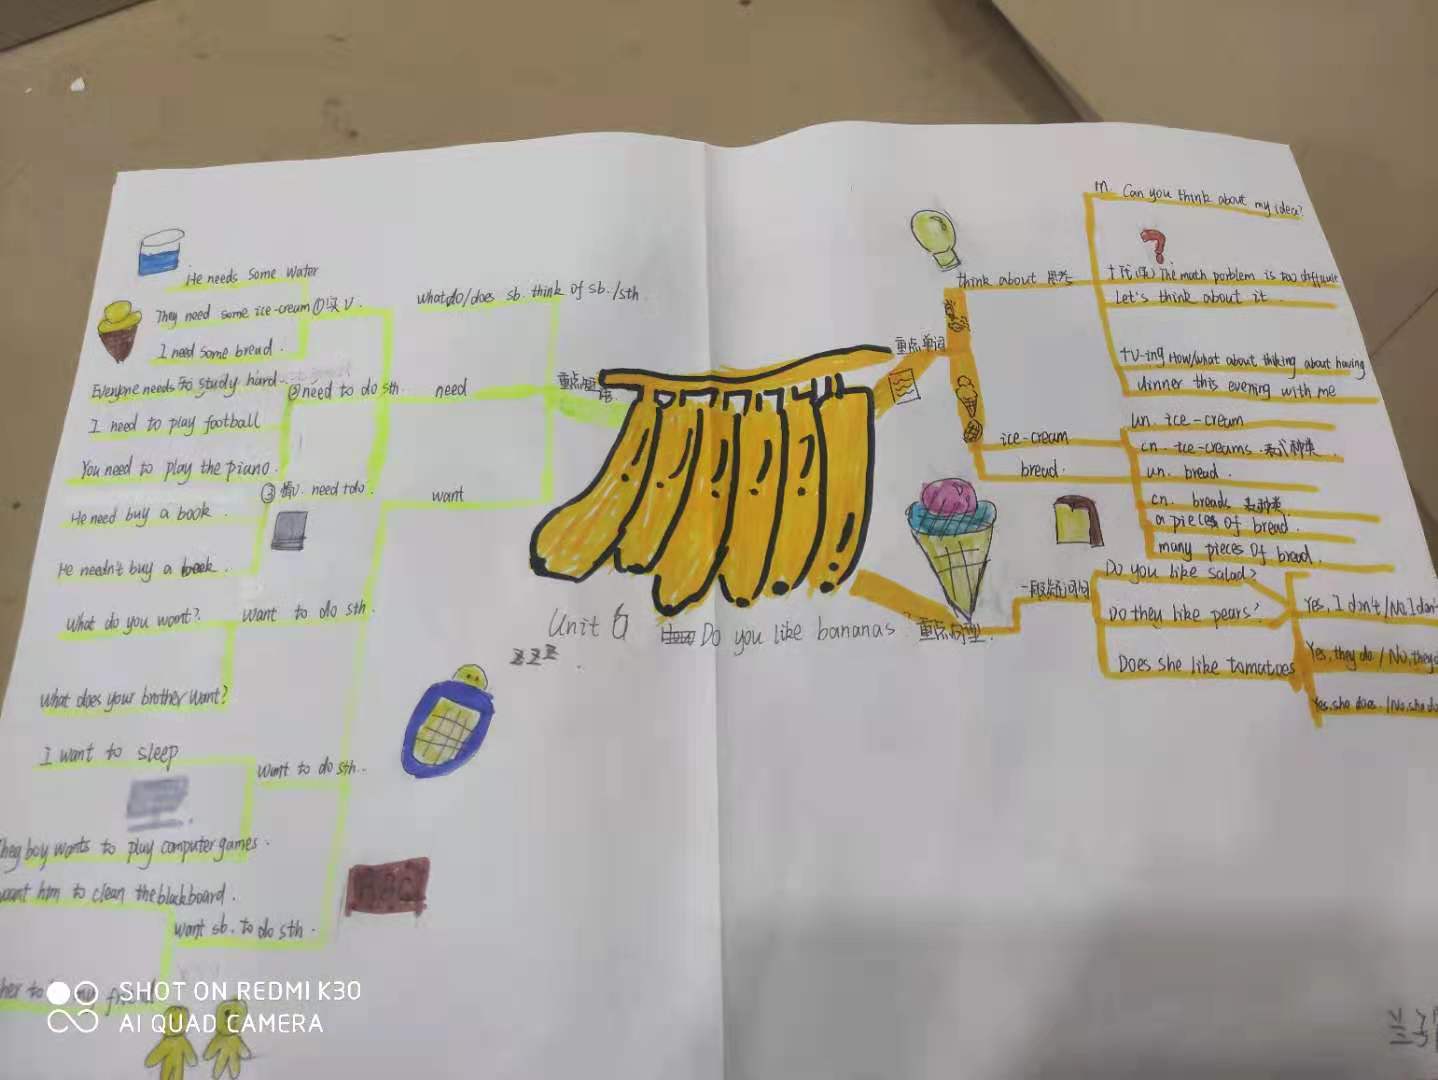 He needs some water
They need some ice-cream ①实V.
I need some bread.
Everyone needs to study hard.
②need to do sth.
I need to play football
You need to play the piano.
③情V. need+do.
He need buy a book.
He needn't buy a book.
What do you want?
want to do sth.
What does your brother want?
I want to sleep
want to do sth.
They boy wants to play computer games.
want him to clean the blackboard.
want sb. to do sth.
her to
what do/does sb. think of sb./sth.
need
重点短语
want
Unit 6 Do you like bananas.
zzz
重点单词
think about 思考
Can you think about my idea?
The math porblem is too difficult
Let's think about it.
+V-ing How/what about thiking about having
dinner this evening with me
ice-cream
un. ice-cream
cn. ice-creams. 表示种类
bread.
un. bread.
cn. breads 表种类.
a pieces of bread.
many pieces of bread.
重点句型.
一般疑问句
Do you like salad?
Do they like pears?
Does she like tomatoes
Yes, I don't / No, I don't
Yes, they do / No, they
Yes, she does. / No, she do
SHOT ON REDMI K30
AI QUAD CAMERA